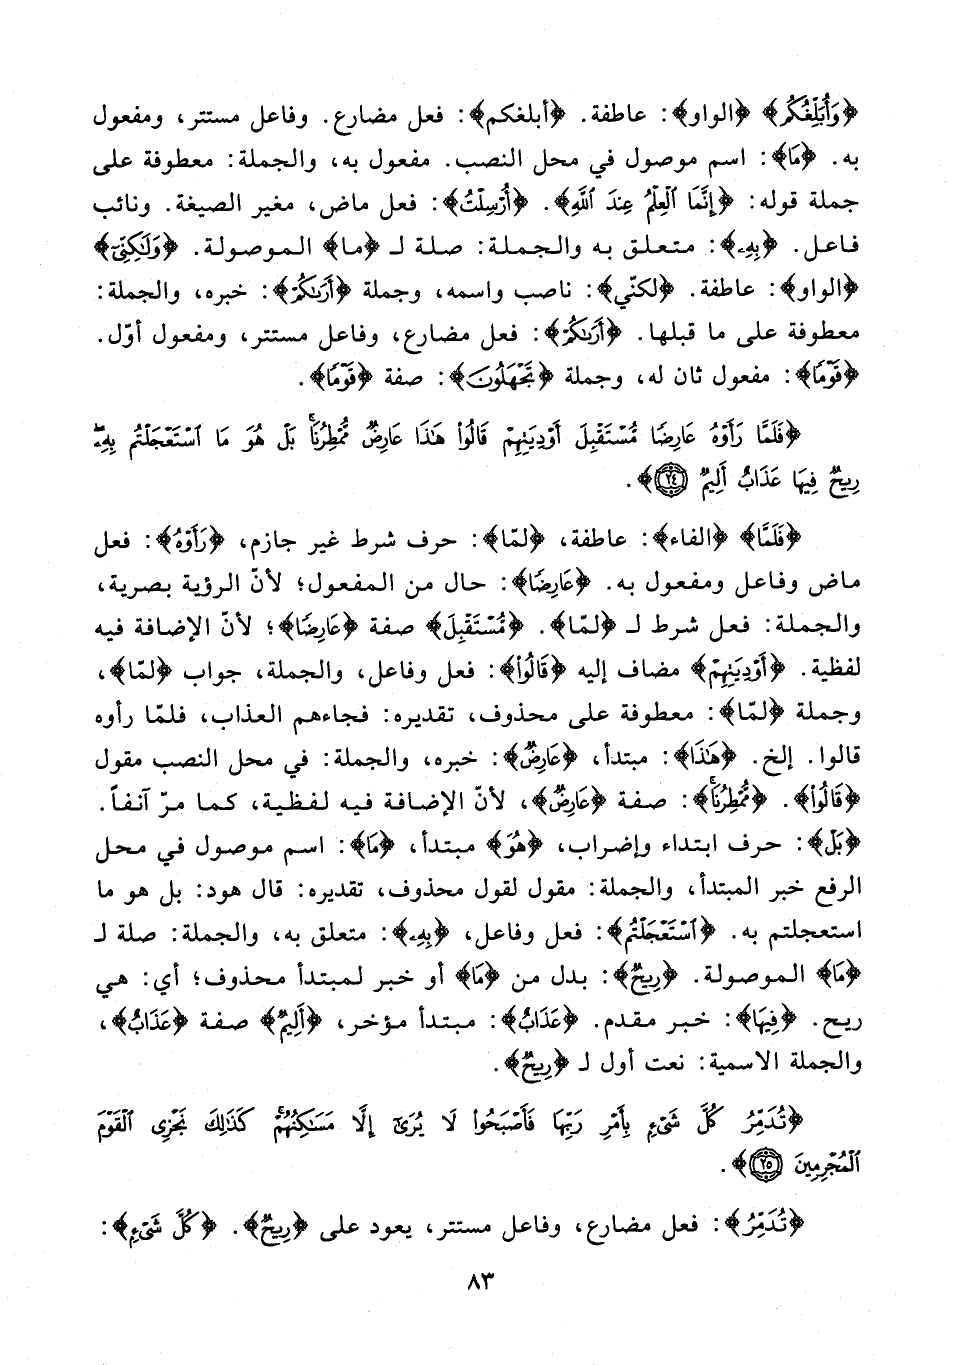 ﴿وَأُبَلِّغُكُم﴾ ﴿الواو﴾: عاطفة. ﴿أبلغكم﴾: فعل مضارع. وفاعل مستتر، ومفعول
به. ﴿مَا﴾: اسم موصول في محل النصب. مفعول به، والجملة: معطوفة على
جملة قوله: ﴿إِنَّمَا ٱلْعِلْمُ عِندَ ٱللَّهِ﴾. ﴿أُرْسِلْتُ﴾: فعل ماض، مغير الصيغة. ونائب
فاعل. ﴿بِهِۦ﴾: متعلق به والجملة: صلة لـ ﴿ما﴾ الموصولة. ﴿وَلَٰكِنِّىٓ﴾
﴿الواو﴾: عاطفة. ﴿لكنّي﴾: ناصب واسمه، وجملة ﴿أَرَىٰكُمْ﴾: خبره، والجملة:
معطوفة على ما قبلها. ﴿أَرَىٰكُمْ﴾: فعل مضارع، وفاعل مستتر، ومفعول أوّل.
﴿قَوْمًا﴾: مفعول ثان له، وجملة ﴿تَجْهَلُونَ﴾: صفة ﴿قَوْمًا﴾.
﴿فَلَمَّا رَأَوْهُ عَارِضًا مُّسْتَقْبِلَ أَوْدِيَتِهِمْ قَالُوا۟ هَٰذَا عَارِضٌ مُّمْطِرُنَا ۚ بَلْ هُوَ مَا ٱسْتَعْجَلْتُم بِهِۦ ۖ
رِيحٌ فِيهَا عَذَابٌ أَلِيمٌ ٢٤﴾.
﴿فَلَمَّا﴾ ﴿الفاء﴾: عاطفة، ﴿لمّا﴾: حرف شرط غير جازم، ﴿رَأَوْهُ﴾: فعل
ماض وفاعل ومفعول به. ﴿عَارِضًا﴾: حال من المفعول؛ لأنّ الرؤية بصرية،
والجملة: فعل شرط لـ ﴿لمّا﴾. ﴿مُّسْتَقْبِلَ﴾ صفة ﴿عَارِضًا﴾؛ لأنّ الإضافة فيه
لفظية. ﴿أَوْدِيَتِهِمْ﴾ مضاف إليه ﴿قَالُوا۟﴾: فعل وفاعل، والجملة، جواب ﴿لمّا﴾،
وجملة ﴿لمّا﴾: معطوفة على محذوف، تقديره: فجاءهم العذاب، فلمّا رأوه
قالوا. إلخ. ﴿هَٰذَا﴾: مبتدأ، ﴿عَارِضٌ﴾: خبره، والجملة: في محل النصب مقول
﴿قَالُوا۟﴾. ﴿مُّمْطِرُنَا ۚ﴾: صفة ﴿عَارِضٌ﴾، لأنّ الإضافة فيه لفظية، كما مرّ آنفاً.
﴿بَلْ﴾: حرف ابتداء وإضراب، ﴿هُوَ﴾ مبتدأ، ﴿مَا﴾: اسم موصول في محل
الرفع خبر المبتدأ، والجملة: مقول لقول محذوف، تقديره: قال هود: بل هو ما
استعجلتم به. ﴿ٱسْتَعْجَلْتُم﴾: فعل وفاعل، ﴿بِهِۦ﴾: متعلق به، والجملة: صلة لـ
﴿مَا﴾ الموصولة. ﴿رِيحٌ﴾: بدل من ﴿مَا﴾ أو خبر لمبتدأ محذوف؛ أي: هي
ريح. ﴿فِيهَا﴾: خبر مقدم. ﴿عَذَابٌ﴾: مبتدأ مؤخر، ﴿أَلِيمٌ﴾ صفة ﴿عَذَابٌ﴾،
والجملة الاسمية: نعت أول لـ ﴿رِيحٌ﴾.
﴿تُدَمِّرُ كُلَّ شَىْءٍۭ بِأَمْرِ رَبِّهَا فَأَصْبَحُوا۟ لَا يُرَىٰٓ إِلَّا مَسَٰكِنُهُمْ ۚ كَذَٰلِكَ نَجْزِى ٱلْقَوْمَ
ٱلْمُجْرِمِينَ ٢٥﴾.
﴿تُدَمِّرُ﴾: فعل مضارع، وفاعل مستتر، يعود على ﴿رِيحٌ﴾. ﴿كُلَّ شَىْءٍۭ﴾:
٨٣